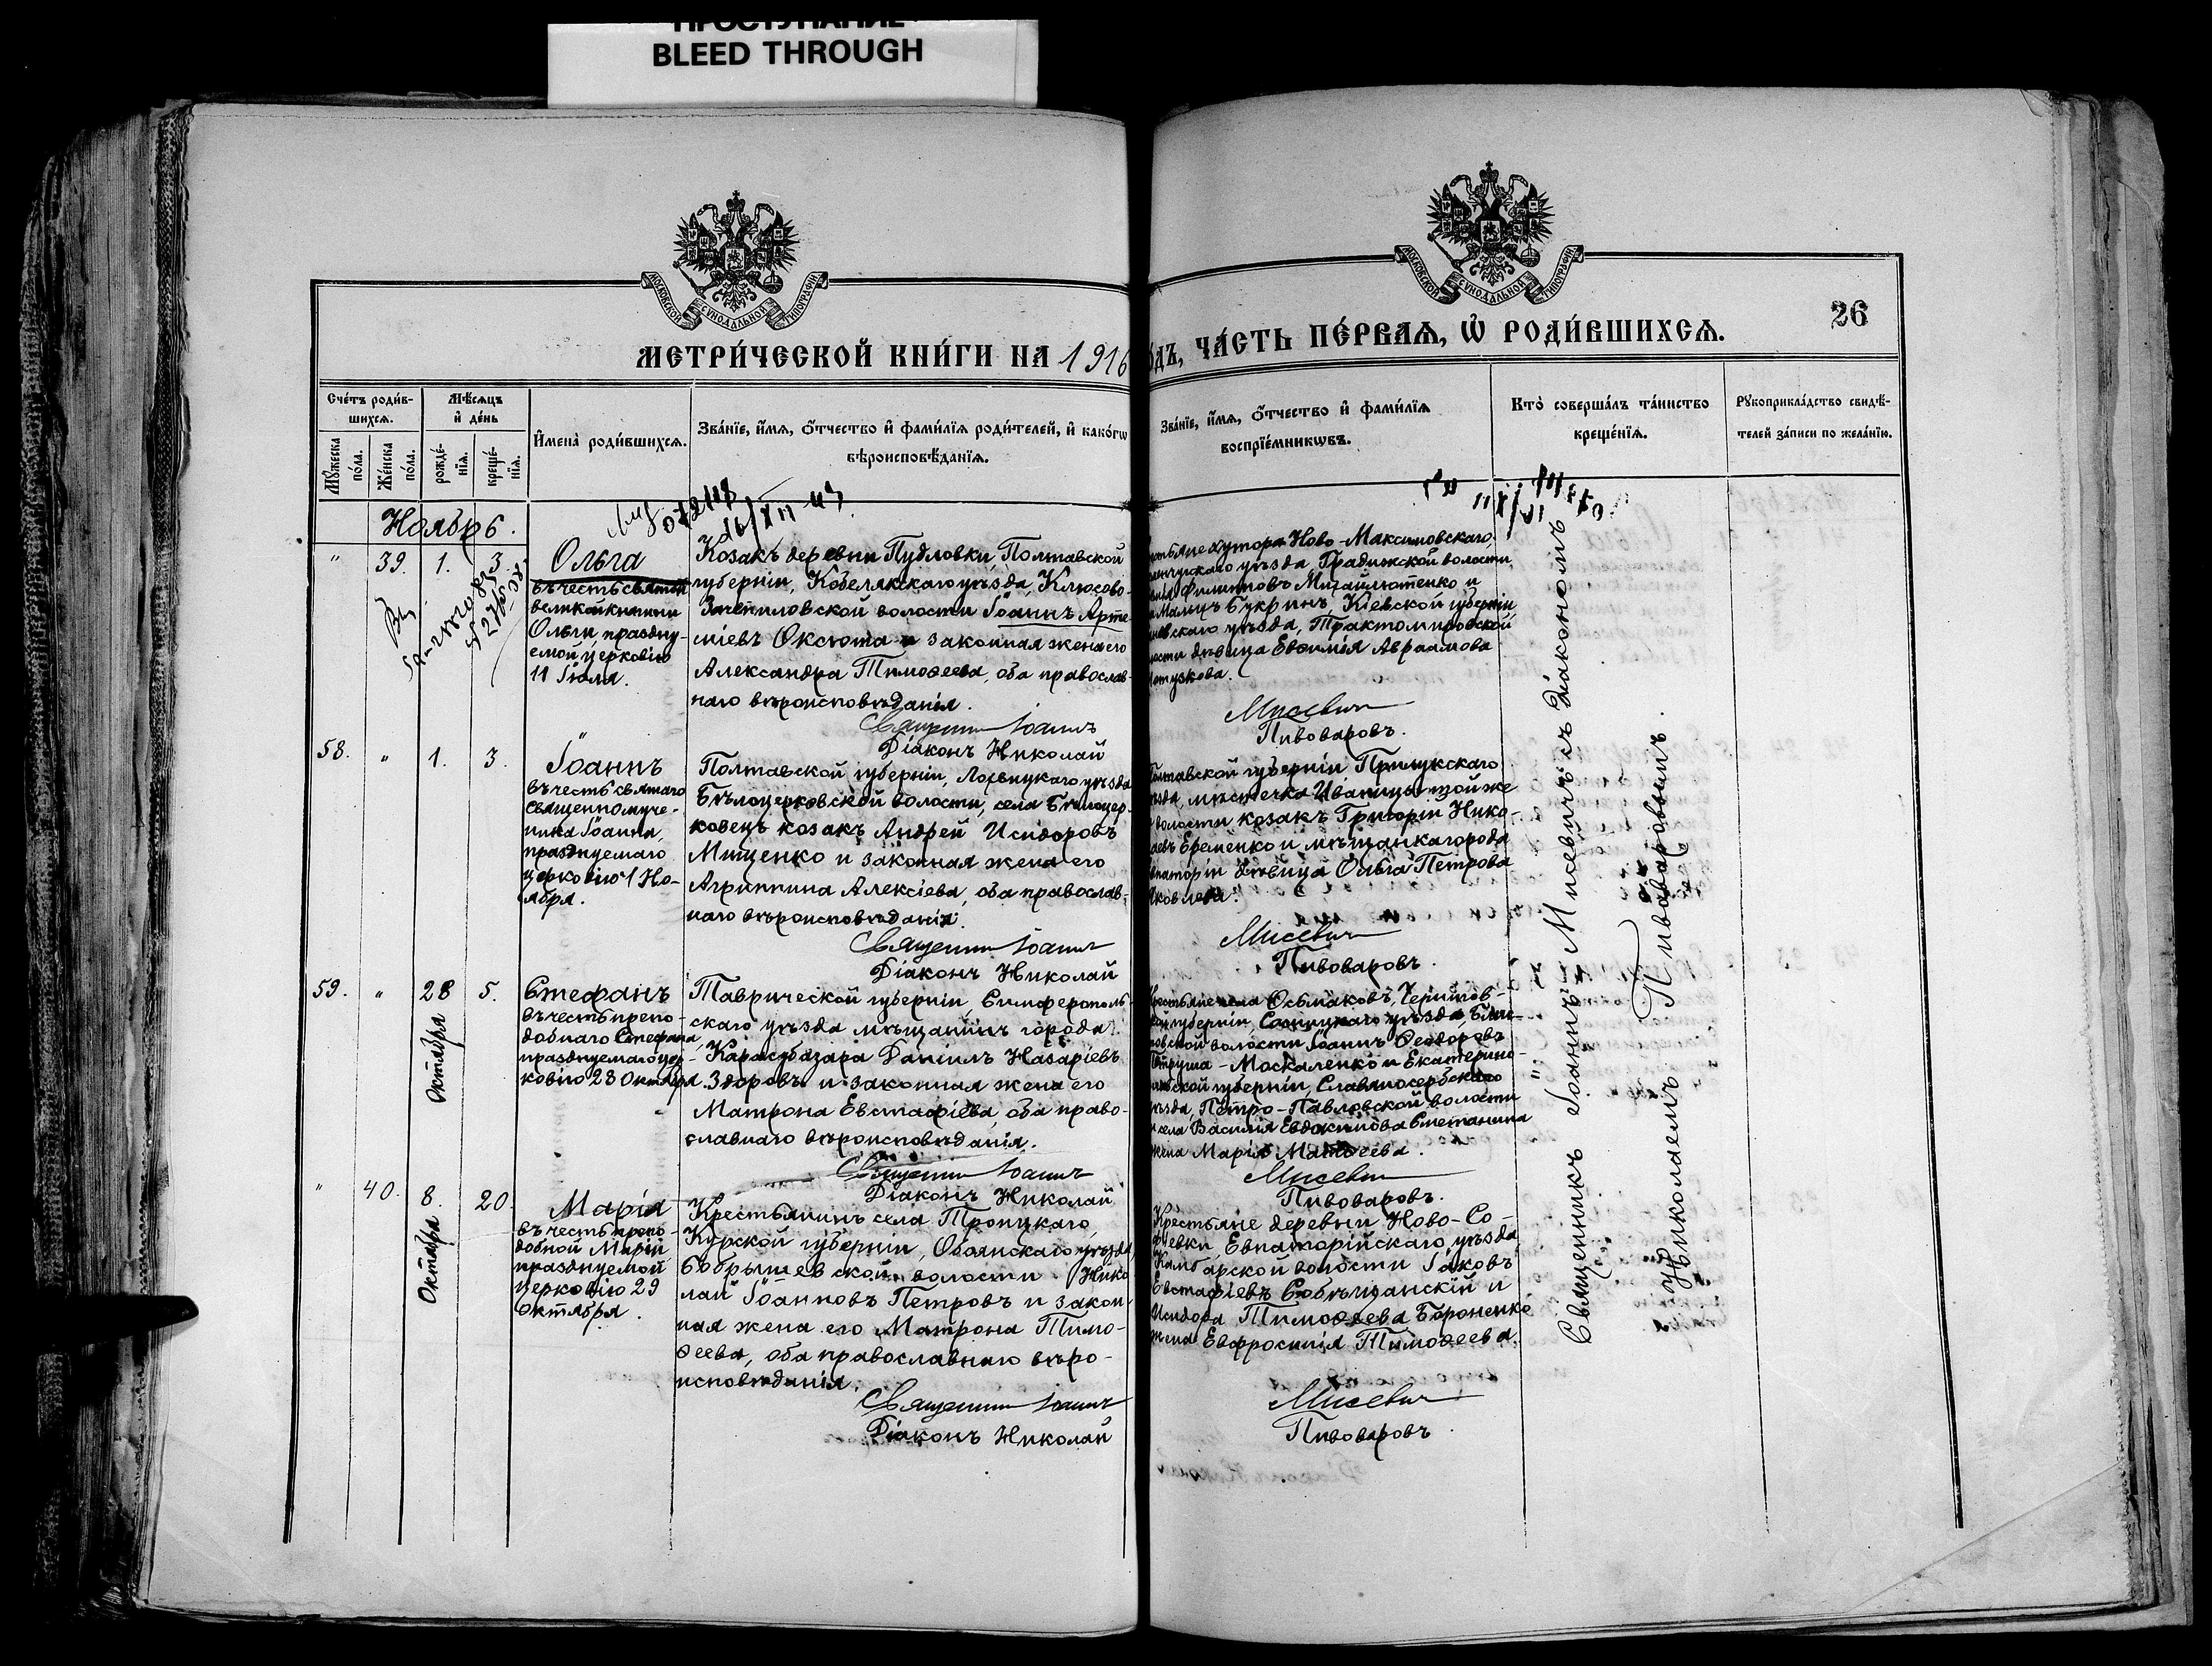 ПРОСТУПАНИЕ
BLEED THROUGH
МОСКОВСКОЙ СѴНОДАЛЬНОЙ ТИПОГРАФІИ
МОСКОВСКОЙ СѴНОДАЛЬНОЙ ТИПОГРАФІИ
26
МЕТРИ́ЧЕСКОЙ КНИ́ГИ НА 1916
о́дъ, ЧА́СТЬ ПЕ́РВАѦ, Ѡ҆ РОДИ́ВШИХСѦ.
Сче́тъ роди́в-
шихсѧ.
Мꙋжеска
по́ла.
Же́нска
по́ла.
Мѣ́сѧцъ
и҆ де́нь
рожде́-
нїѧ.
креще́-
нїѧ.
И҆мена̀ роди́вшихсѧ.
Зва́нїе, и҆́мѧ, о҆́тчество и҆ фами́лїѧ роди́телей, и҆ како́гѡ
вѣроисповѣ́данїѧ.
Зва́нїе, и҆́мѧ, о҆́тчество и҆ фами́лїѧ
воспрїе́мникѡвъ.
Кто̀ соверша́лъ та́инство
креще́нїѧ.
Рꙋкоприкла́дство свидѣ́-
телей за́писи по жела́нїю.
Ноябрь.
"
39.
1.
3.
Ольга
въ честь святой
великой княгини
Ольги, праздну-
емой церковію
11 Іюля.
Козакъ деревни Пудловки, Полтавской
губерніи, Кобелякскаго уѣзда, Клюсово-
Зачепиловской волости Іоаннъ Арте-
міевъ Оксюта и законная жена его
Александра Тимоѳеева, оба православ-
наго вѣроисповѣданія.
Священникъ Іоаннъ
Діаконъ Николай
хутора Ново-Максимовскаго,
уѣзда, Градижской волости
Филипповъ Михайлютенко и
Букринъ, Кіевской губерніи
уѣзда, Трактомировской
дѣвица Евѳимія Авраамова
Мисевичъ
Пивоваровъ.
58.
"
1.
3.
Іоаннъ
въ честь святаго
священномуче-
ника Іоанна,
празднуемаго
церковію 1 Но-
ября.
Полтавской губерніи, Лохвицкаго уѣзда
Бѣлоцерковской волости, села Бѣлоцер-
ковецъ козакъ Андрей Исидоровъ
Мищенко и законная жена его
Агриппина Алексіева, оба православ-
наго вѣроисповѣданія.
Священникъ Іоаннъ
Діаконъ Николай
губерніи Прилукскаго
мѣстечка Иваницы той же
волости козакъ Григорій Нико-
аевъ Еременко и мѣщанка города
дѣвица Ольга Петрова
Мисевичъ
Пивоваровъ.
59.
"
28
Октября
5.
Стефанъ
въ честь препо-
добнаго Стефана,
празднуемаго цер-
ковію 28 Октября.
Таврической губерніи, Симферополь-
скаго уѣзда мѣщанинъ города
Карасубазара Даніилъ Назаріевъ
Здоровъ и законная жена его
Матрона Евстафіева, оба право-
славнаго вѣроисповѣданія.
Священникъ Іоаннъ
Діаконъ Николай
губерніи, Сосницкаго уѣзда,
волости Іоаннъ Ѳеодоровъ
Москаленко и Екатерино-
губерніи, Славяносербскаго
Петро-Павловской волости
села Василія Евдокимова Сметанина
жена Марія Матѳеева.
Мисевичъ
Пивоваровъ.
"
40.
8.
Октября
20.
Марія
въ честь препо-
добной Маріи
празднуемой
церковію 29
октября.
Крестьянинъ села Троицкаго,
Курской губерніи, Обоянскаго уѣзда
Бобрышевской волости Нико-
лай Іоанновъ Петровъ и закон-
ная жена его Матрона Тимо-
ѳеева, оба православнаго вѣро-
исповѣданія.
Священникъ Іоаннъ
Діаконъ Николай
Крестьяне деревни Ново-Со-
фіевки, Евпаторійскаго уѣзда,
волости Іаковъ
Евстафіевъ и
Исидора Тимоѳеева Бороненко
жена Евфросинія Тимоѳеева.
Мисевичъ
Пивоваровъ
Священникъ Іоаннъ Мисевичъ съ Діакономъ
Николаемъ Пивоваровымъ.